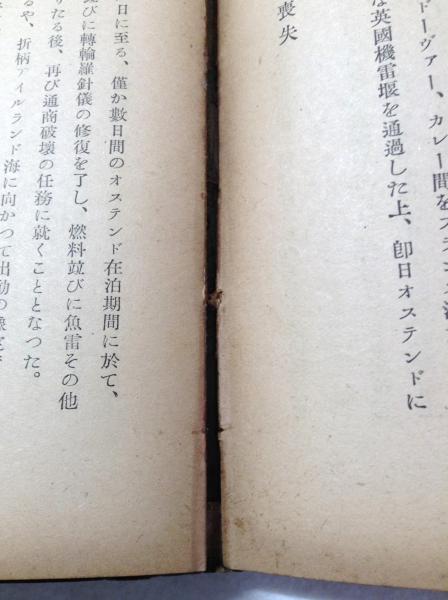 ドーヴァー、カレー間を
な英國機雷堰を通過した上、卽日オステンドに
喪失
日に至る、僅か數日間のオステンド在泊期間に於て、
並びに轉輪羅針儀の修復を了し、燃料竝びに魚雷その他
りたる後、再び通商破壞の任務に就くこととなつた。
るや、折柄アイルランド海に向かつて出動の